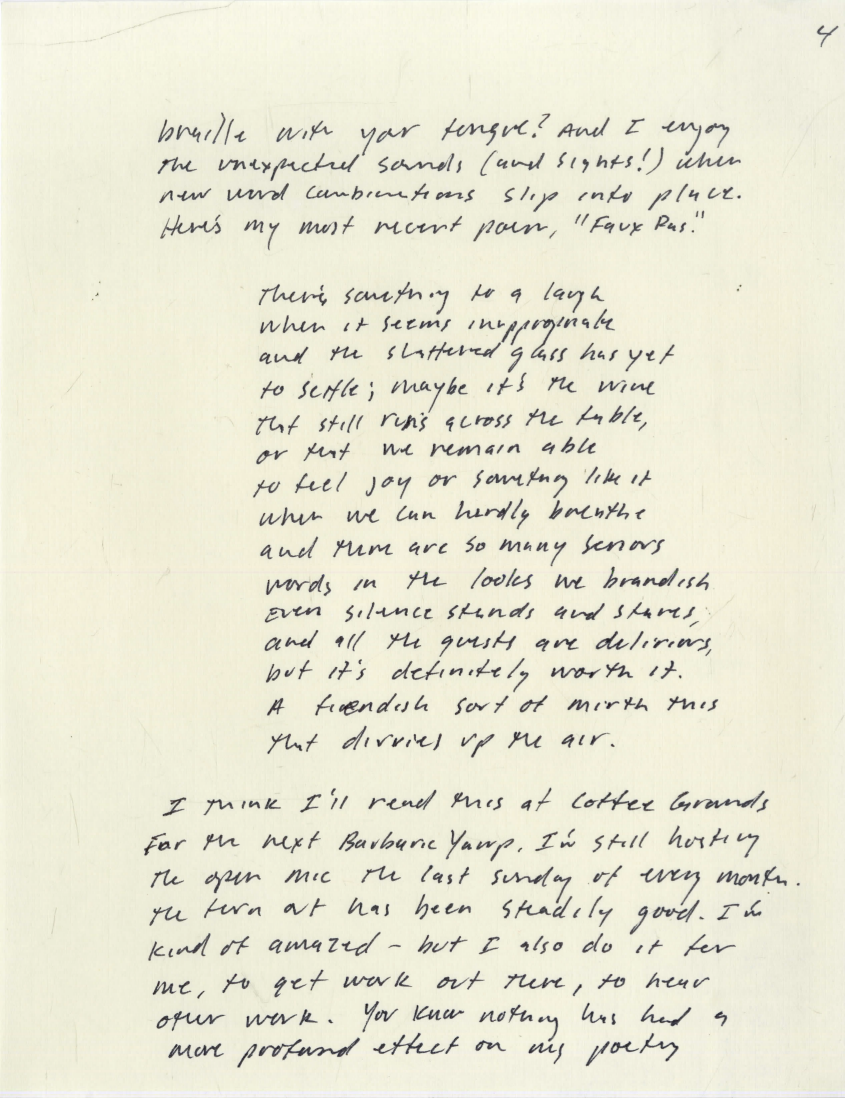 4
braille with your tongue? And I enjoy
the unexpected sounds (and sights!) when
new word combinations slip into place.
Here's my most recent poem, "Faux Pas."
There's something to a laugh
when it seems inappropriate
and the shattered glass has yet
to settle; maybe it's the wine
that still runs across the table,
or that we remain able
to feel joy or something like it
when we can hardly breathe
and there are so many serious
words in the looks we brandish
Even silence stands and stares,
and all the guests are delirious,
but it's definitely worth it.
A fiendish sort of mirth this
that dirties up the air.
I think I'll read this at Coffee Grounds
For the next Barbaric Yawp. I'm still hosting
the open mic the last sunday of every month.
the turn out has been steadily good. I'm
kind of amazed - but I also do it for
me, to get work out there, to hear
other work. You know nothing has had a
more profound effect on my poetry